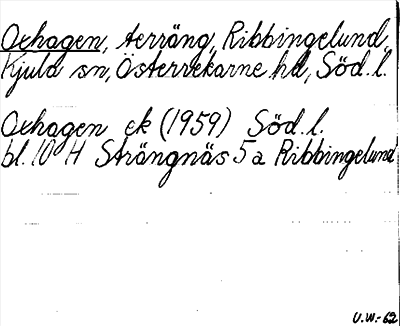 Oxhagen, terräng, Ribbingelund,
Kjula sn, Österrekarne hd, Söd. l.
Oxhagen ek (1959) Söd. l.
bl. 10 H Strängnäs 5 a Ribbingelund
U.W.-62